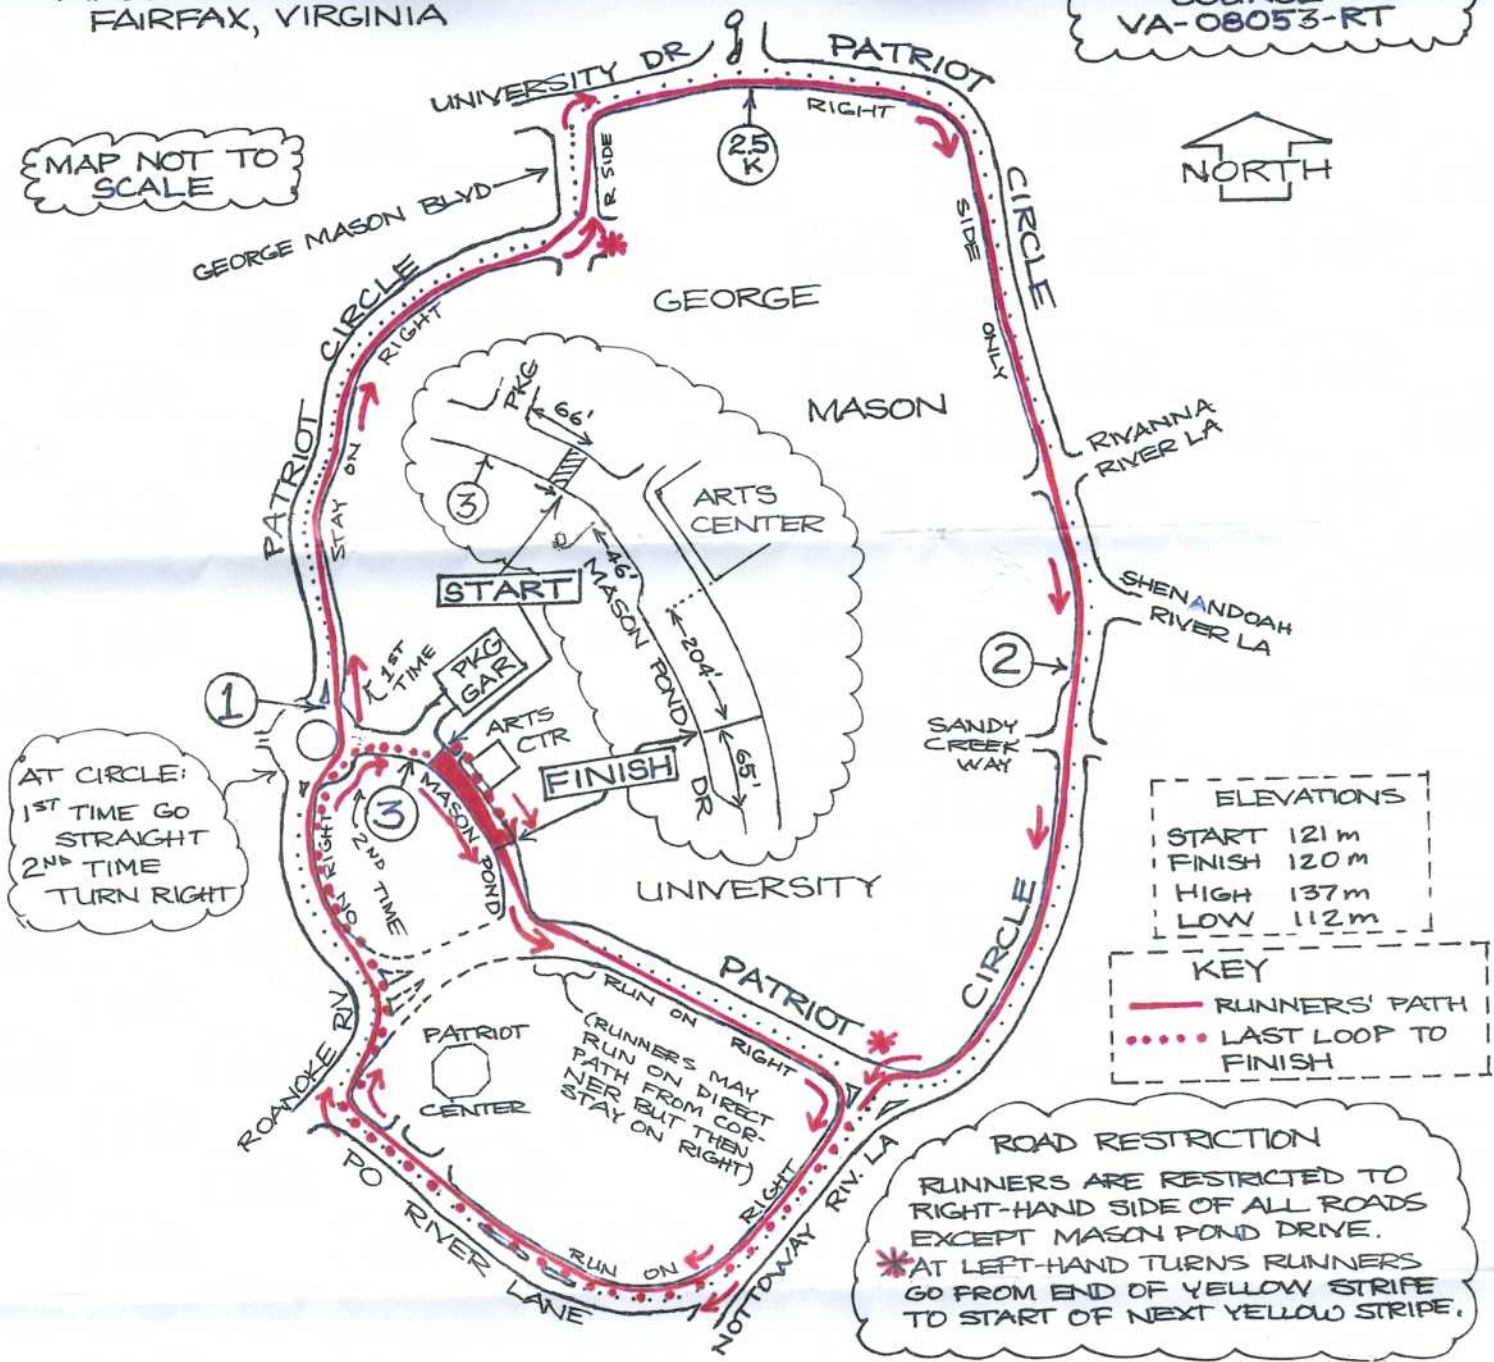 FAIRFAX, VIRGINIA
VA-08053-RT
UNIVERSITY DR
PATRIOT
CIRCLE
RIGHT
SIDE
ONLY
2.5
K
R SIDE
NORTH
MAP NOT TO
SCALE
GEORGE MASON BLVD
PATRIOT
CIRCLE
STAY ON
RIGHT
GEORGE
MASON
UNIVERSITY
PKG
66'
3
ARTS
CENTER
46'
MASON POND DR
204'
65'
START
FINISH
RIVANNA
RIVER LA
SHENANDOAH
RIVER LA
2
SANDY
CREEK
WAY
1ST
TIME
PKG
GAR
ARTS
CTR
1
3
MASON
POND
AT CIRCLE:
1ST TIME GO
STRAIGHT
2ND TIME
TURN RIGHT
2ND TIME
RIGHT
ELEVATIONS
START 121 m
FINISH 120 m
HIGH 137 m
LOW 112 m
KEY
RUNNERS' PATH
LAST LOOP TO
FINISH
PATRIOT
CIRCLE
RUN
ON
RIGHT
(RUNNERS MAY
RUN ON DIRECT
PATH FROM COR-
NER BUT THEN
STAY ON RIGHT)
PATRIOT
CENTER
ROANOKE RIV
PO RIVER LANE
RUN ON
RIGHT
NOTTOWAY RIV. LA
ROAD RESTRICTION
RUNNERS ARE RESTRICTED TO
RIGHT-HAND SIDE OF ALL ROADS
EXCEPT MASON POND DRIVE.
* AT LEFT-HAND TURNS RUNNERS
GO FROM END OF YELLOW STRIPE
TO START OF NEXT YELLOW STRIPE.